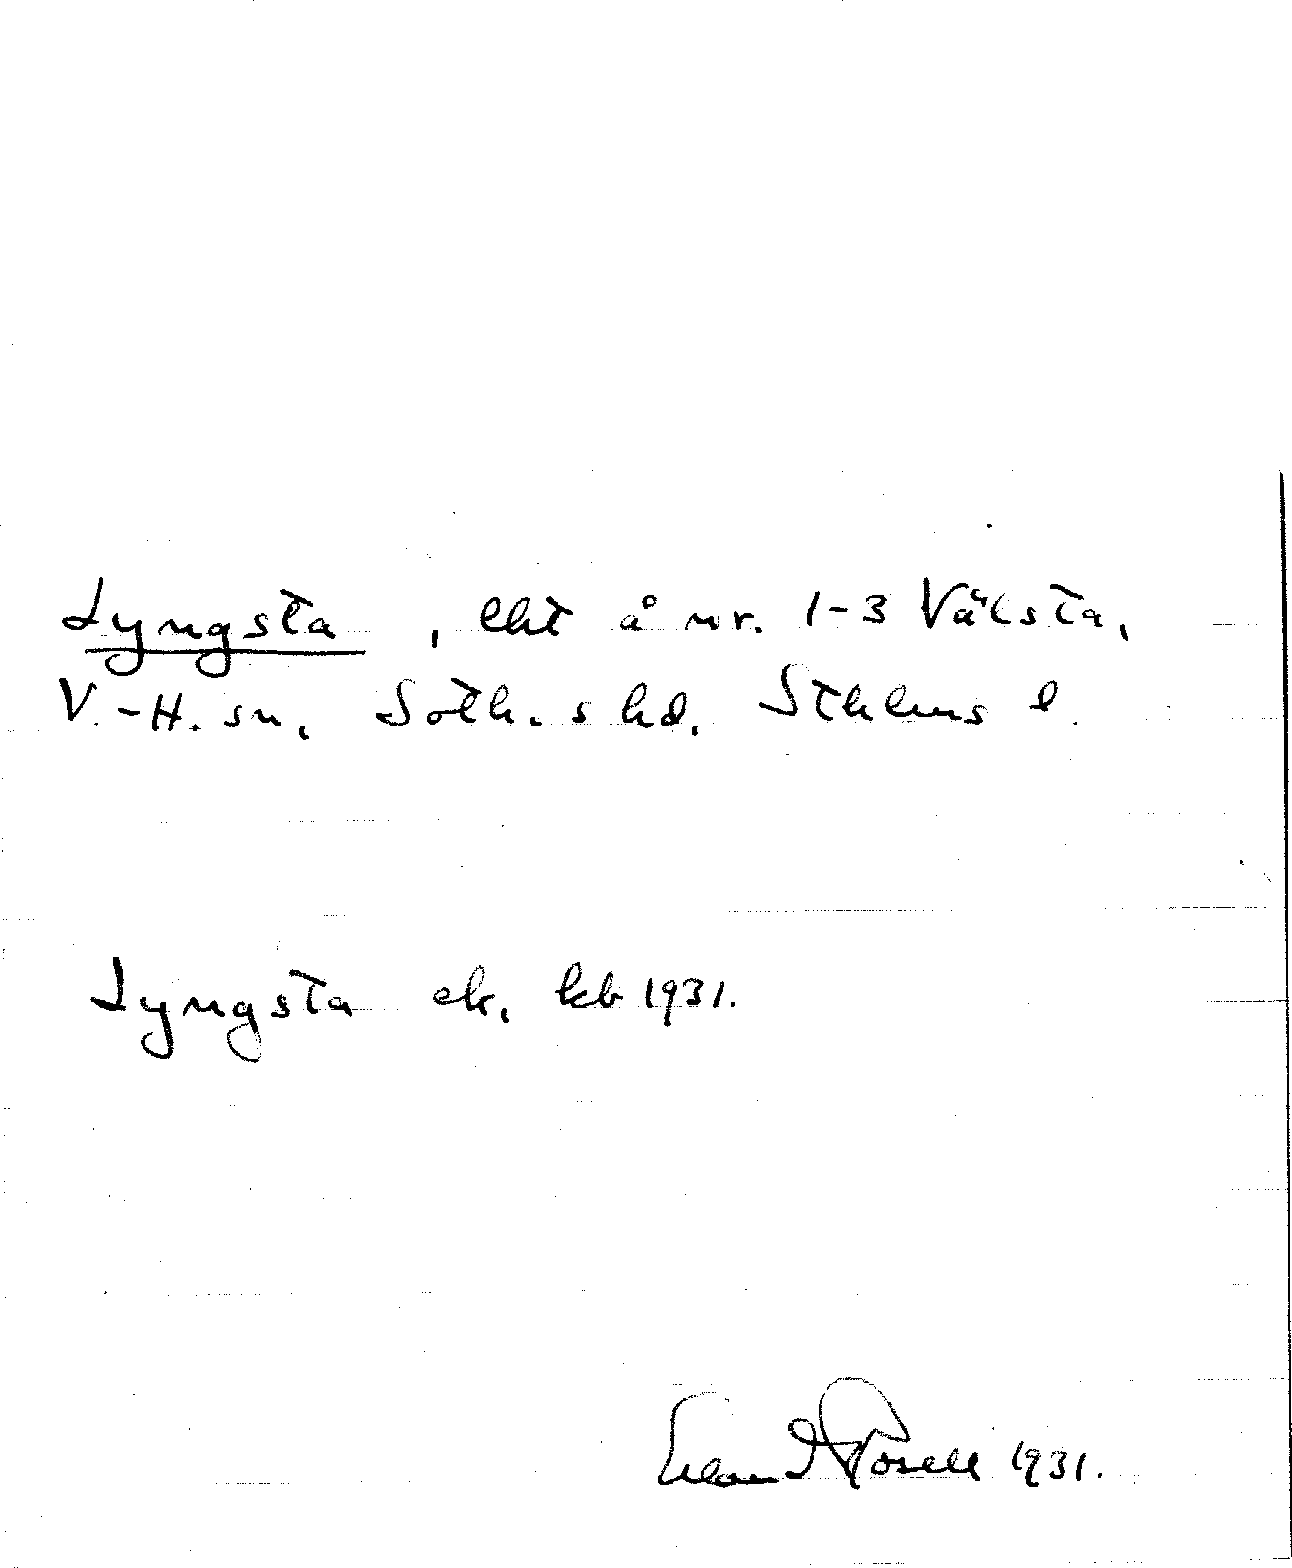 Lyngsta, lht å nr. 1-3 Välsta,
V.-H. sn, Soth. s hd. Sthlms l.
Lyngsta ek. kb 1931.
Rosell 1931.